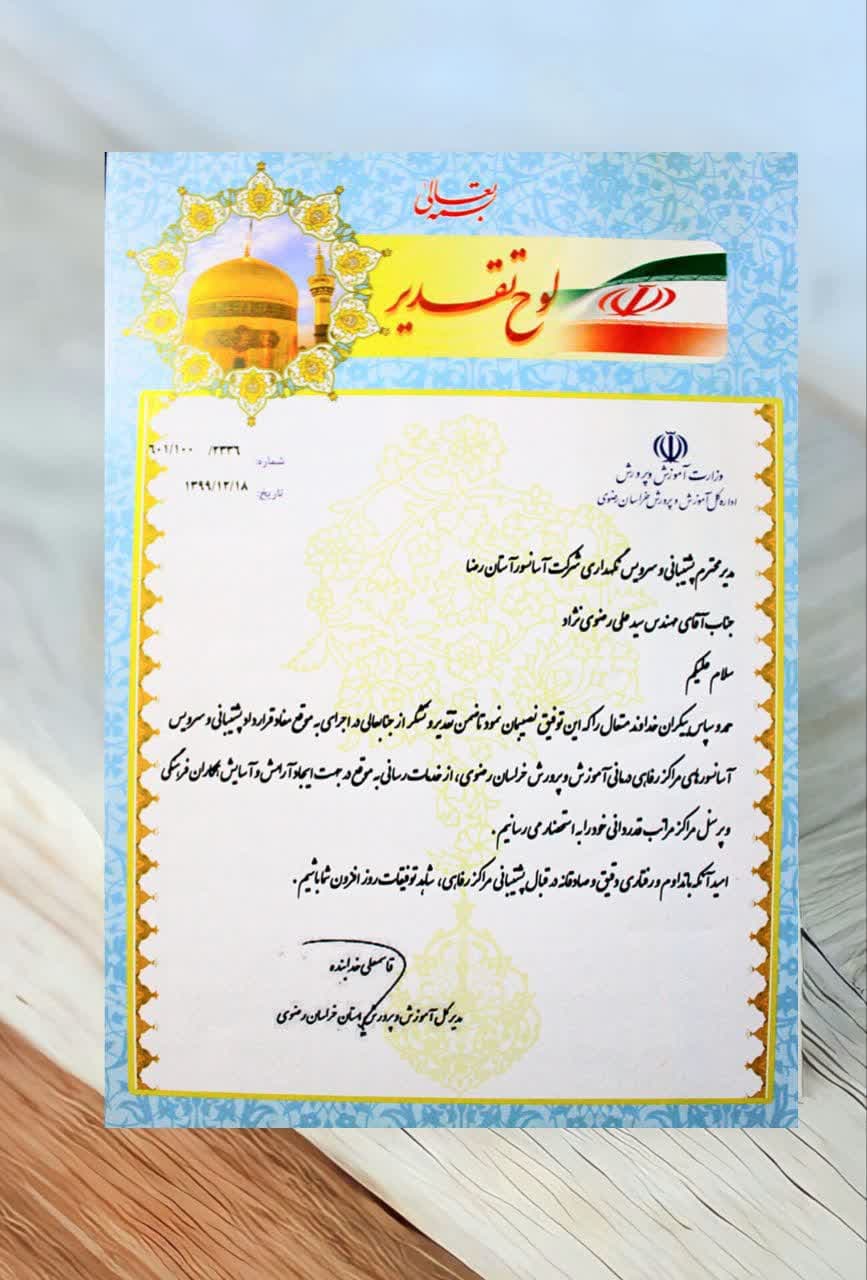 بسمه تعالی
لوح تقدیر
وزارت آموزش و پرورش
اداره کل آموزش و پرورش خراسان رضوی
شماره: ۶۰۱/۱۰۰ /۲۳۳۶
تاریخ: ۱۳۹۹/۱۲/۱۸
مدیر محترم پشتیبانی و سرویس نگهداری شرکت آسانسور آستان رضا
جناب آقای مهندس سید علی رضوی نژاد
سلام علیکم
حمد و سپاس بیکران خداوند متعال را که این توفیق نصیبمان نمود تا ضمن تقدیر و تشکر از جنابعالی در اجرای به موقع مفاد قرارداد پشتیبانی و سرویس
آسانسورهای مراکز رفاهی درمانی آموزش و پرورش خراسان رضوی، از خدمات رسانی به موقع در جهت ایجاد آرامش و آسایش همکاران فرهنگی
و پرسنل مراکز مراتب قدردانی خود را به استحضار می رسانیم.
امید آنکه با تداوم و رفتاری دقیق و صادقانه در قبال پشتیبانی مراکز رفاهی، شاهد توفیقات روز افزون شما باشیم.
قاسمعلی خدابنده
مدیر کل آموزش و پرورش استان خراسان رضوی